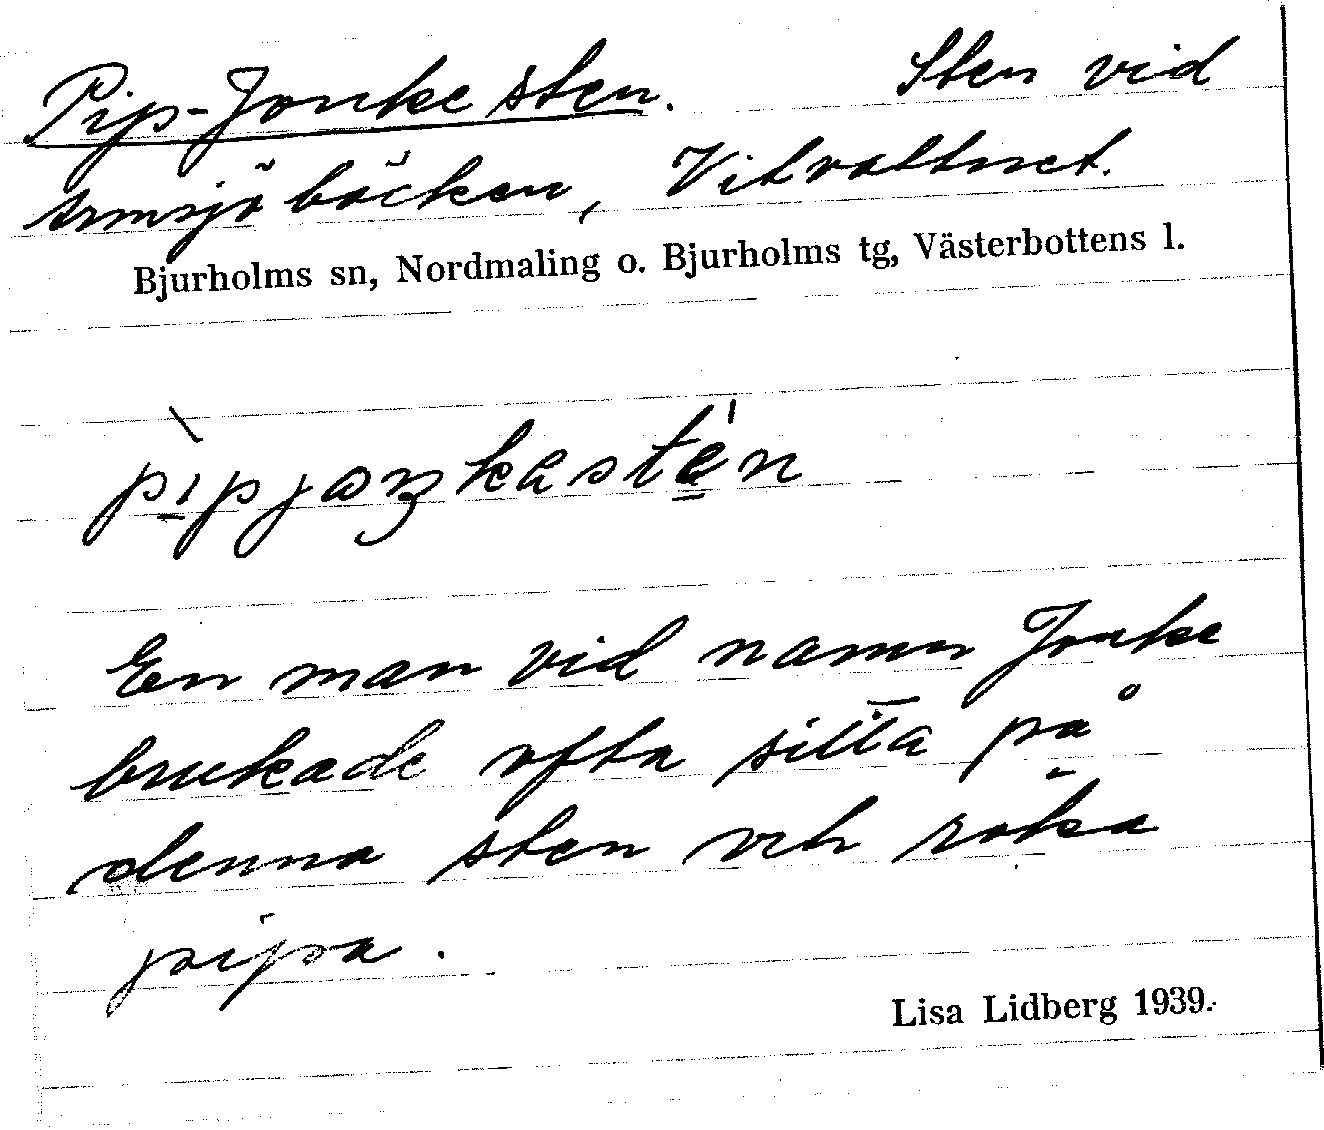 Pip-Jonkesten. Sten vid
Armsjöbäcken, Vitvattnet.
Bjurholms sn, Nordmaling o. Bjurholms tg, Västerbottens l.
En man vid namn Jonke
brukade ofta sitta på
denna sten och röka
pipa.
Lisa Lidberg 1939.